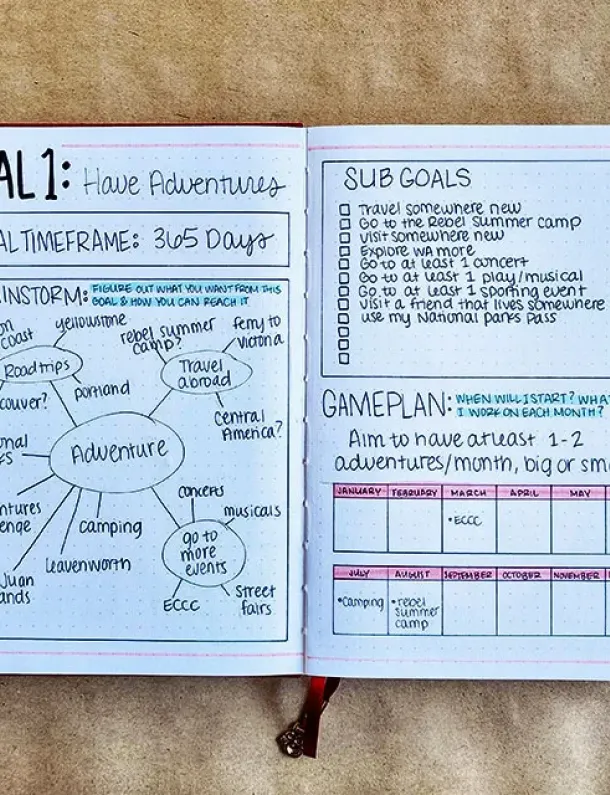 AL 1: Have Adventures
AL TIMEFRAME: 365 Days
INSTORM: FIGURE OUT WHAT YOU WANT FROM THIS
GOAL & HOW YOU CAN REACH IT
on
coast
yellowstone
Roadtrips
couver?
portland
rebel summer
camp?
ferry to
victoria
Travel
abroad
Central
America?
Adventure
onal
ks
ntures
enge
Juan
ands
Leavenworth
camping
concerts
musicals
go to
more
events
ECCC
Street
fairs
SUB GOALS
Travel somewhere new
Go to the Rebel Summer camp
Visit somewhere new
Explore WA more
Go to at least 1 concert
Go to at least 1 play/musical
Go to at least 1 sporting event
Visit a friend that lives somewhere
use my National parks Pass
GAMEPLAN: WHEN WILL I START? WHAT
I WORK ON EACH MONTH?
Aim to have at least 1-2
adventures/month, big or sm
JANUARY FEBRUARY MARCH APRIL MAY
•ECCC
JULY AUGUST SEPTEMBER OCTOBER NOVEMBER
•camping
•rebel
summer
camp